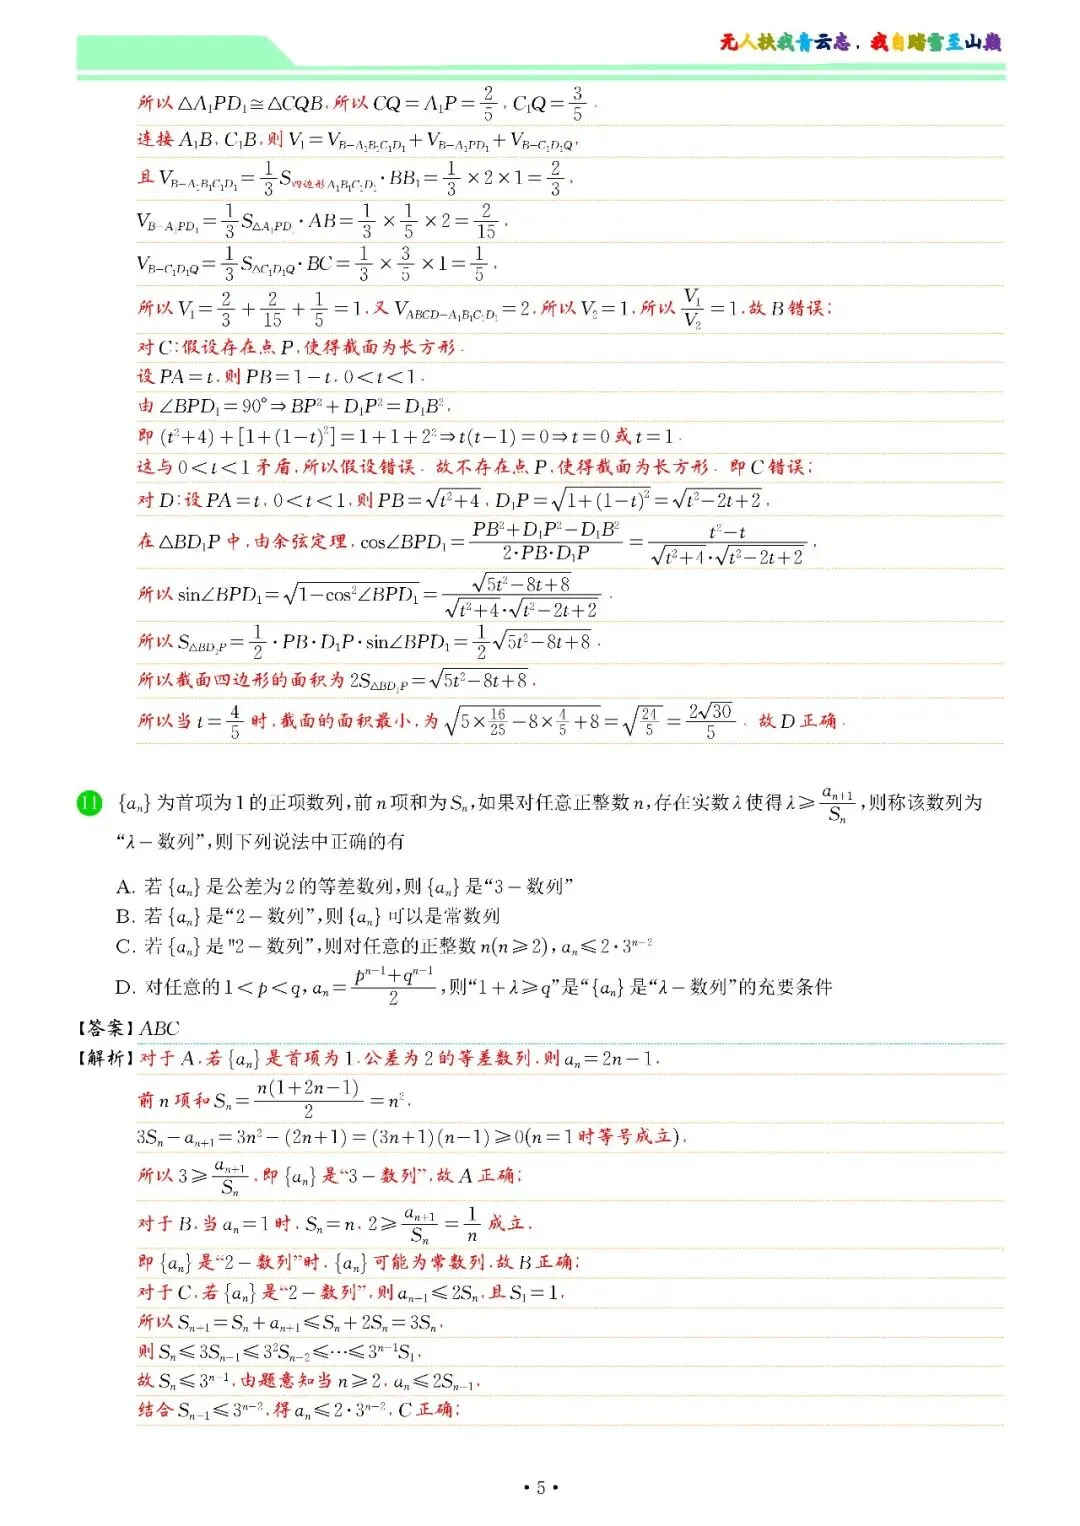 无人扶我青云志，我自踏雪至山巅
所以 △A₁PD₁≅△CQB，所以 CQ=A₁P=2/5，C₁Q=3/5．
连接 A₁B，C₁B，则 V₁=V_{B-A₁B₁C₁D₁}+V_{B-A₁PD₁}+V_{B-C₁D₁Q}，
且 V_{B-A₁B₁C₁D₁}=1/3 S_{四边形A₁B₁C₁D₁}·BB₁=1/3×2×1=2/3，
V_{B-A₁PD₁}=1/3 S_{△A₁PD₁}·AB=1/3×1/5×2=2/15，
V_{B-C₁D₁Q}=1/3 S_{△C₁D₁Q}·BC=1/3×3/5×1=1/5，
所以 V₁=2/3+2/15+1/5=1，又 V_{ABCD-A₁B₁C₁D₁}=2，所以 V₂=1，所以 V₁/V₂=1，故 B 错误；
对 C：假设存在点 P，使得截面为长方形．
设 PA=t，则 PB=1-t，0<t<1．
由 ∠BPD₁=90°⇒BP²+D₁P²=D₁B²，
即 (t²+4)+[1+(1-t)²]=1+1+2²⇒t(t-1)=0⇒t=0 或 t=1．
这与 0<t<1 矛盾，所以假设错误．故不存在点 P，使得截面为长方形．即 C 错误；
对 D：设 PA=t，0<t<1，则 PB=√(t²+4)，D₁P=√(1+(1-t)²)=√(t²-2t+2)，
在 △BD₁P 中，由余弦定理，cos∠BPD₁=(PB²+D₁P²-D₁B²)/(2·PB·D₁P)=(t²-t)/(√(t²+4)·√(t²-2t+2))，
所以 sin∠BPD₁=√(1-cos²∠BPD₁)=√(5t²-8t+8)/(√(t²+4)·√(t²-2t+2))．
所以 S_{△BD₁P}=1/2·PB·D₁P·sin∠BPD₁=1/2√(5t²-8t+8)．
所以截面四边形的面积为 2S_{△BD₁P}=√(5t²-8t+8)，
所以当 t=4/5 时，截面的面积最小，为 √(5×16/25-8×4/5+8)=√(24/5)=2√30/5．故 D 正确．
11 {aₙ} 为首项为 1 的正项数列，前 n 项和为 Sₙ，如果对任意正整数 n，存在实数 λ 使得 λ⩾aₙ₊₁/Sₙ，则称该数列为
“λ-数列”，则下列说法中正确的有
A. 若 {aₙ} 是公差为 2 的等差数列，则 {aₙ} 是“3-数列”
B. 若 {aₙ} 是“2-数列”，则 {aₙ} 可以是常数列
C. 若 {aₙ} 是"2-数列”，则对任意的正整数 n(n⩾2)，aₙ⩽2·3ⁿ⁻²
D. 对任意的 1<p<q，aₙ=(pⁿ⁻¹+qⁿ⁻¹)/2，则“1+λ⩾q”是“{aₙ} 是“λ-数列”的充要条件
【答案】ABC
【解析】对于 A，若 {aₙ} 是首项为 1，公差为 2 的等差数列，则 aₙ=2n-1，
前 n 项和 Sₙ=n(1+2n-1)/2=n²，
3Sₙ-aₙ₊₁=3n²-(2n+1)=(3n+1)(n-1)⩾0(n=1 时等号成立)，
所以 3⩾aₙ₊₁/Sₙ，即 {aₙ} 是“3-数列”，故 A 正确；
对于 B，当 aₙ=1 时，Sₙ=n，2⩾aₙ₊₁/Sₙ=1/n 成立，
即 {aₙ} 是“2-数列”时，{aₙ} 可能为常数列，故 B 正确；
对于 C，若 {aₙ} 是“2-数列”，则 aₙ₊₁⩽2Sₙ，且 S₁=1，
所以 Sₙ₊₁=Sₙ+aₙ₊₁⩽Sₙ+2Sₙ=3Sₙ，
则 Sₙ⩽3Sₙ₋₁⩽3²Sₙ₋₂⩽⋯⩽3ⁿ⁻¹S₁，
故 Sₙ⩽3ⁿ⁻¹，由题意知当 n⩾2，aₙ⩽2Sₙ₋₁，
结合 Sₙ₋₁⩽3ⁿ⁻²，得 aₙ⩽2·3ⁿ⁻²，C 正确；
·5·